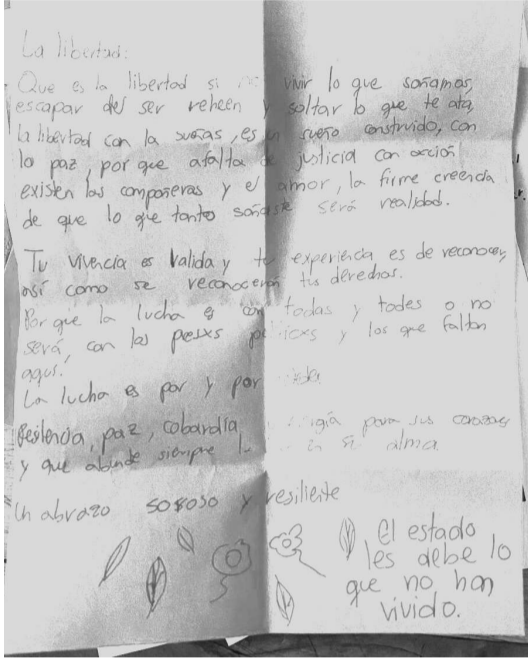 La libertad:
Que es la libertad si no vivir lo que soñamos,
escapar del ser reheen y soltar lo que te ata,
la libertad con la sueñas, es un sueño construido, con
la paz, por que afalta de justicia con acción
existen las compañeras y el amor, la firme creencia
de que lo que tanto soñaste será realidad.
Tu vivencia es valida y tu experiencia es de reconocer,
así como se reconoceran tus derechos.
Por que la lucha es con todas y todes o no
será, con las presxs y los que faltan
aqui.
La lucha es por y por
Resilencia, paz, cobardía para sus corazones
y que abunde siempre en su alma
Un abrazo sororo y resiliente
El estado
les debe lo
que no han
vivido.